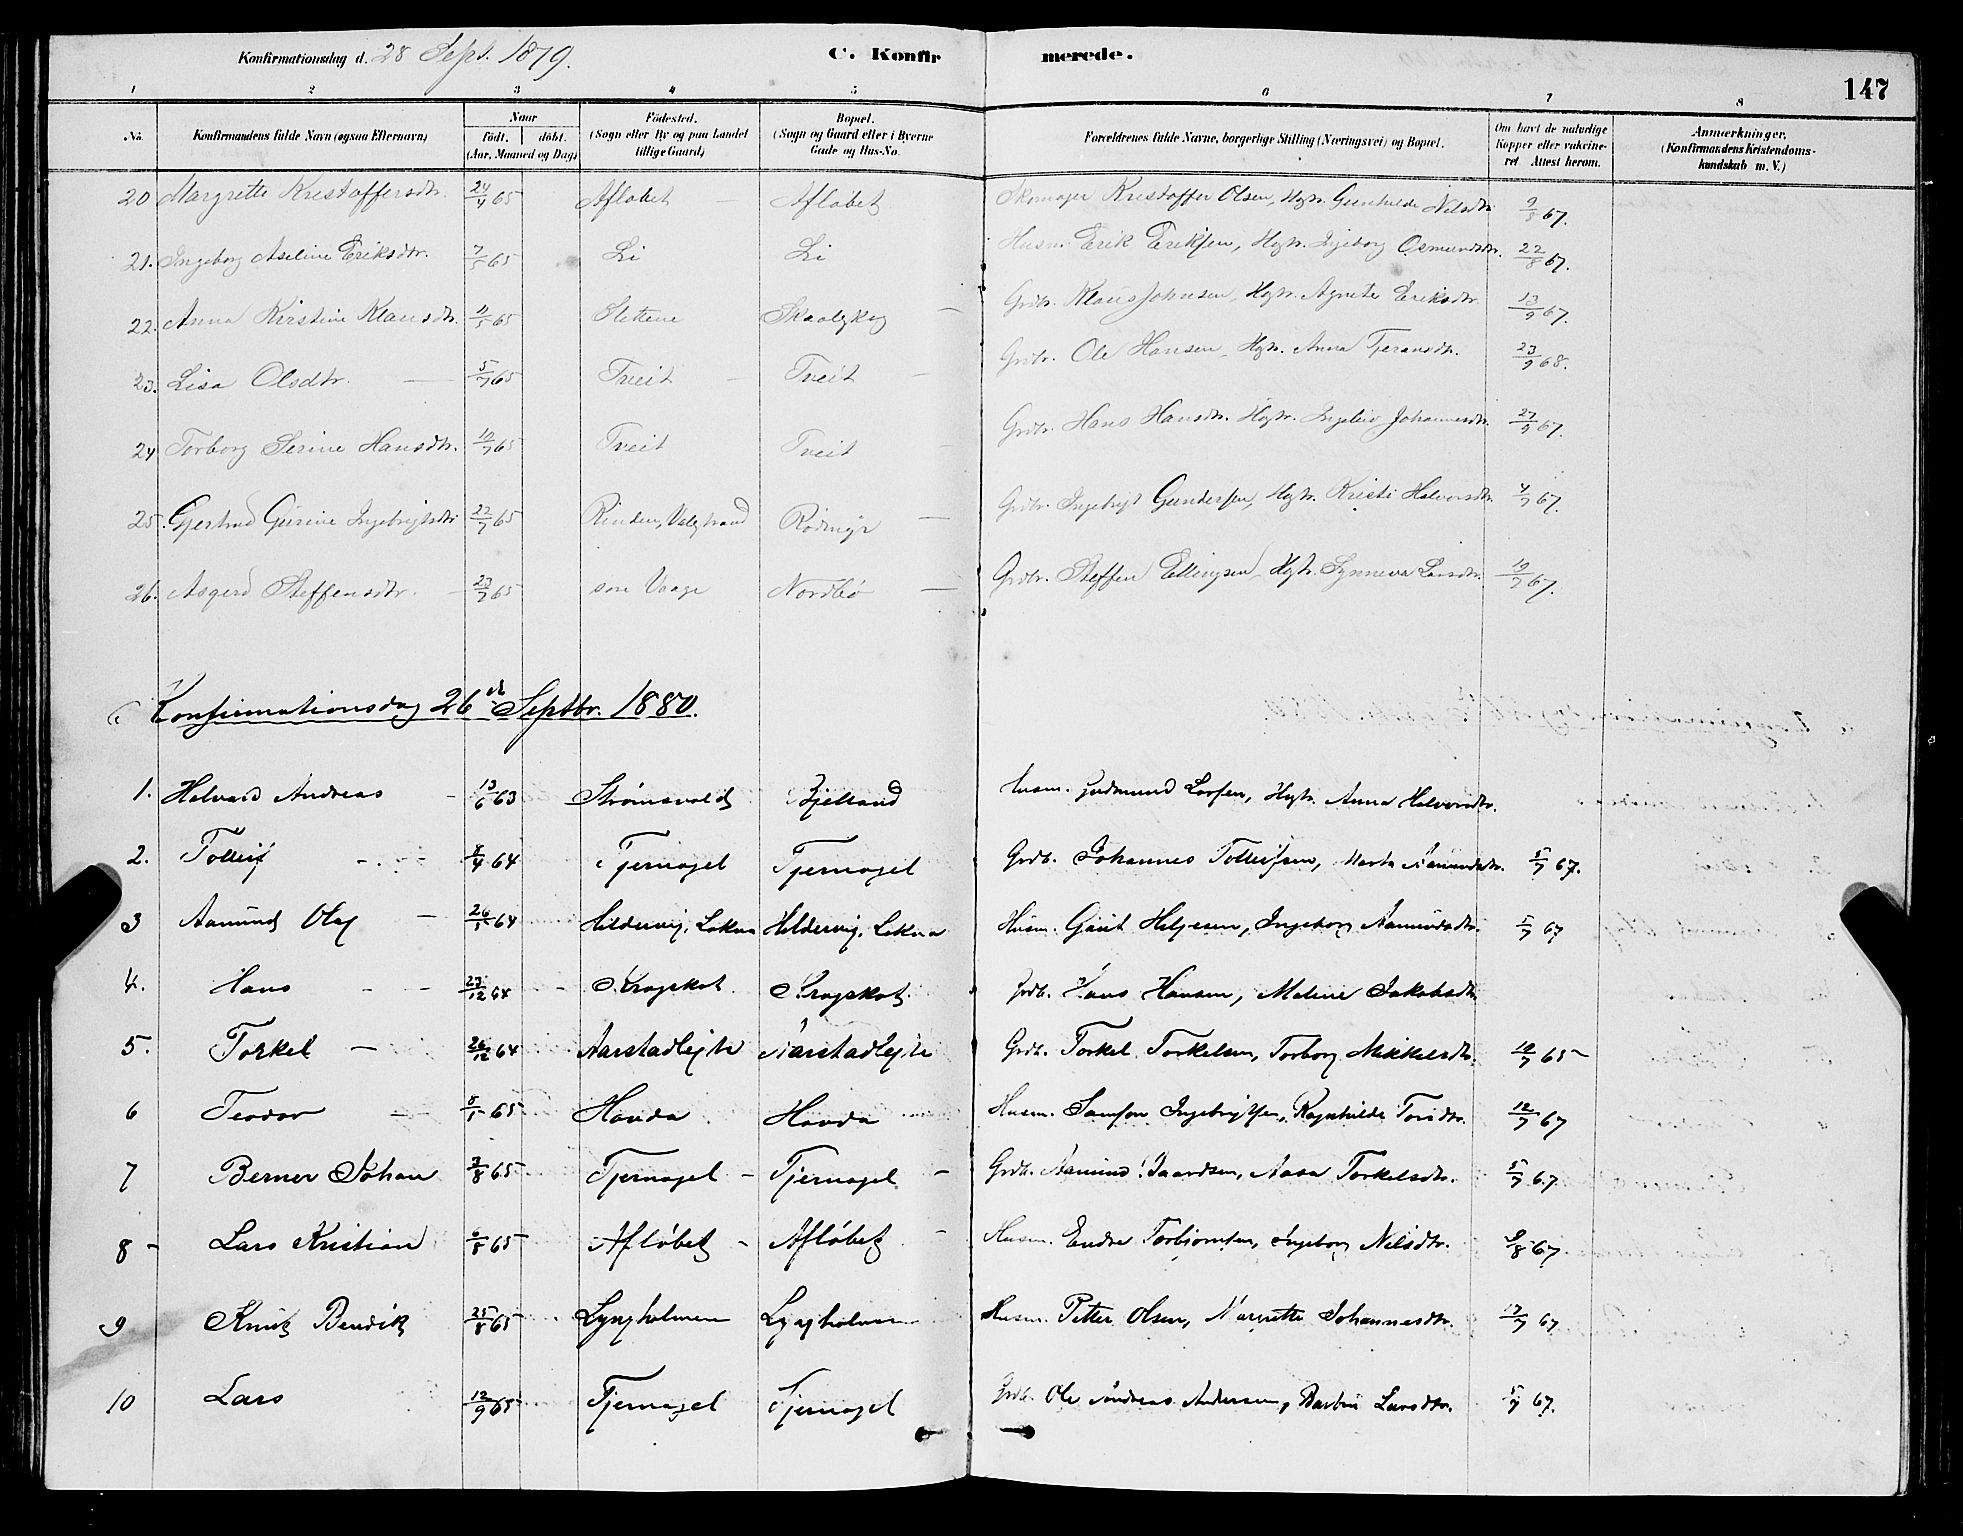 Konfirmationsdag d. 28 Sept. 1879. C. Konfirmerede. 147
1 2 3 4 5 6 7 8
No. Konfirmandens fulde Navn (ogsaa Efternavn) Naar født. døbt. (Aar, Maaned og Dag) Födested. (Sogn eller By og paa Landet tillige Gaard) Bopæl. (Sogn og Gaard eller i Byerne Gade og Hus-No. Forældrenes fulde Navne, borgerlige Stilling (Næringsvei) og Bopæl. Om havt de naturlige Kopper eller vaccineret Attest herom. Anmærkninger. (Konfirmandens Kristendomskundskab m. V.)
20 Margrette Kristoffersdtr. 24/4 65 Afløbet Afløbet Skomager Kristoffer Olsen, Hgtr. Gunhilde Nilsdtr 9/8 67.
21. Ingeborg Aseline Eriksdtr. 7/5 65 Li Li Husm. Erik Eriksen, Hgtr. Ingeborg Osmundsdtr. 22/8 67.
22. Anna Kirstine Klausdtr. 11/5 65 Slettene Grdbr. Klaus Johnsen, Hgtr. Agnete Eriksdtr. 13/9 67.
23. Lisa Olsdtr. 5/7 65 Tveit Tveit Grdbr. Ole Hansen, Hgtr. Anna 23/9 68.
24 Torborg Serine Hansdtr. 10/7 65 Tveit Tveit Grdbr. Hans Hansdtr. Hgtr. Johannesdtr. 27/9 67.
25. Gjertrud Gurine Ingebrigtsdtr 22/7 65 Rinden, Valestrand Rødmyr Grdbr. Ingebrigt Gundersen, Hgtr. Kristi Halvorsdtr. 4/7 67.
26. Asgerd Steffensdtr. 23/7 65 søre Vaage Nordbø Grdbr. Steffen Ellingsen, Hgtr. Synneva Larsdtr. 10/7 67.
Konfirmationsdag 26de Septbr. 1880.
1. Halvard Andreas 13/6 63 Strømsvold Bjelland Husm. Gudmund Larsen, Hgtr. Anna Halvorsdtr.
2. Tolleif 8/4 64 Tjernagel Tjernagel Grdb. Johannes Tolleifsen, Marta Aamundsdtr. 5/7 67.
3 Aamund Olaf 26/5 64 Hildervig, Lokna Hildervig, Lokna Husm. Gaut Helgesen, Ingeborg Aamundsdtr. 5/7 67
4. Hans 23/12 64 Kragskot Kragskot Grdb. Hans Hansen, Malene Jakobsdtr
5. Torkel 26/12 64 Aarstadlejte Aarstadlejte Grdb. Torkel Torkelsen, Torborg Mikkelsdtr. 10/7 65
6 Teodor 8/1 65 Hovda Hovda Husm. Samson Ingebrigtsen, Ragnhilde Torsdtr. 12/7 67
7 Berner Johan 3/8 65 Tjernagel Tjernagel Grdb. Aamund Baardsen, Aasa Torkelsdtr. 5/7 67
8 Lars Kristian 6/8 65 Afløbet Afløbet Husm. Endre Torbjørnsen, Ingeborg Nilsdtr. 9/8 67
9 Knut Bendik 25/8 65 Lyngholmen Lyngholmen Husm. Petter Olsen, Margrette Johannesdtr. 17/7 67
10 Lars 12/9 65 Tjernagel Tjernagel Grdb. Ole Andreas Andersen, Barbru Larsdtr. 5/7 67.